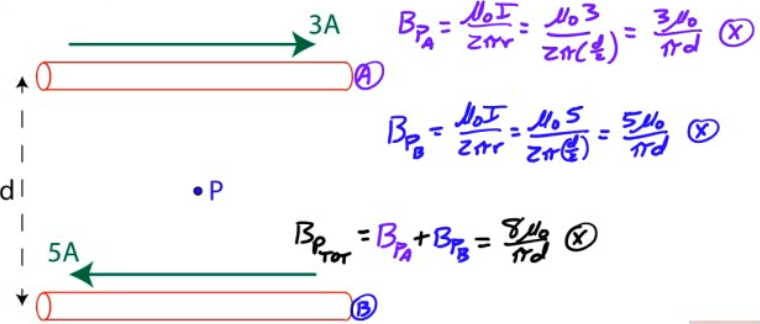 3A
B_{P_A} = \frac{μ₀I}{2πr} = \frac{μ₀3}{2π(\frac{d}{2})} = \frac{3μ₀}{πd} ⓧ
A
B_{P_B} = \frac{μ₀I}{2πr} = \frac{μ₀5}{2π(\frac{d}{2})} = \frac{5μ₀}{πd} ⓧ
d
P
B_{P_{TOT}} = B_{P_A} + B_{P_B} = \frac{8μ₀}{πd} ⓧ
5A
B